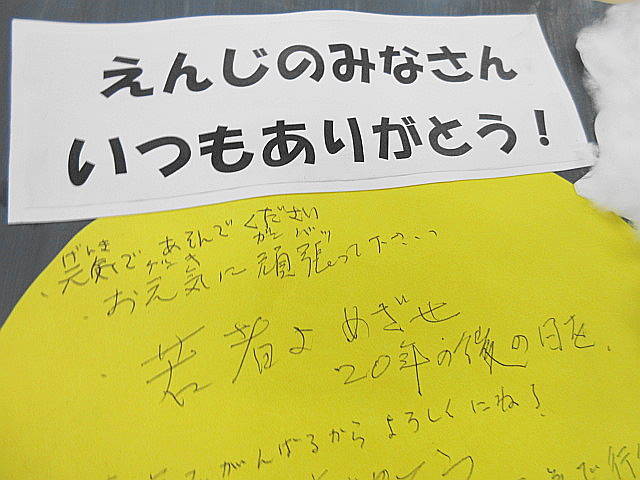 えんじのみなさん
いつもありがとう！
・元気であそんでください
げんき
・お元気に頑張って下さい
ゲンキ ガンバッ
・若者よ めざせ
20年の後の日を。
がんばるからよろしくにね!